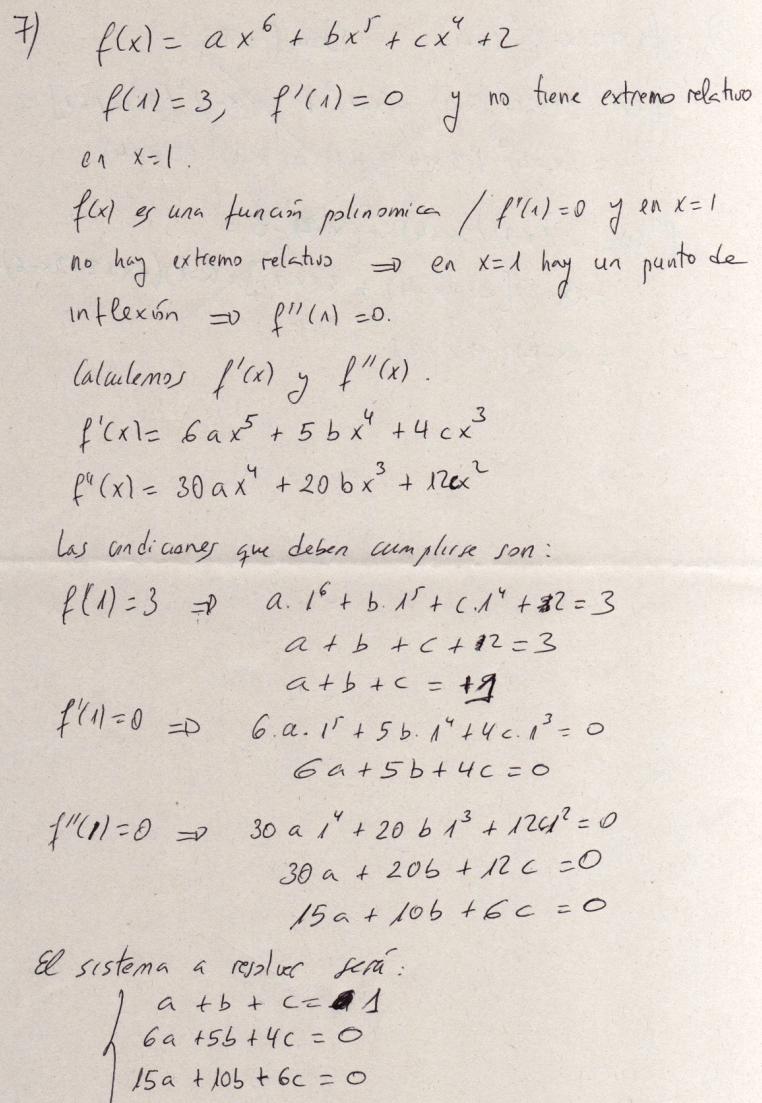 7) f(x) = ax⁶ + bx⁵ + cx⁴ + 2
f(1) = 3, f'(1) = 0 y no tiene extremo relativo
en x=1.
f(x) es una función polinomica / f'(1)=0 y en x=1
no hay extremo relativo ⇒ en x=1 hay un punto de
inflexión ⇒ f''(1) = 0.
Calculemos f'(x) y f''(x).
f'(x) = 6ax⁵ + 5bx⁴ + 4cx³
f''(x) = 30ax⁴ + 20bx³ + 12cx²
Las condiciones que deben cumplirse son:
f(1) = 3 ⇒ a.1⁶ + b.1⁵ + c.1⁴ + 2 = 3
a + b + c + 2 = 3
a + b + c = +1
f'(1) = 0 ⇒ 6.a.1⁵ + 5b.1⁴ + 4c.1³ = 0
6a + 5b + 4c = 0
f''(1) = 0 ⇒ 30a1⁴ + 20b1³ + 12c1² = 0
30a + 20b + 12c = 0
15a + 10b + 6c = 0
El sistema a resolver será:
a + b + c = 1
6a + 5b + 4c = 0
15a + 10b + 6c = 0